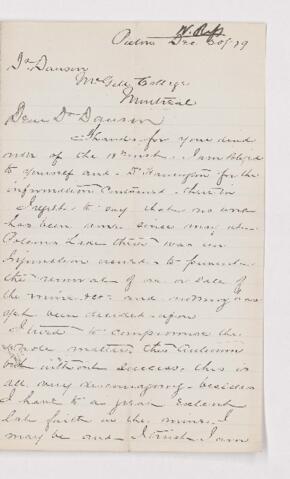 W. Ross
Pictou Dec 20/79
Dr Dawson
McGill College
Montreal
Dear Dr Dawson
Thanks for your kind
note of the inst. I am obliged
to yourself and Dr Harrington for the
information contained therein
I regret to say that no work
has been done since may at
Lake there was an
to
the removal of or sale of
the mine &c. and nothing has
yet been decided upon
I tried to compromise the
whole matter this Autumn
but without success, this is
all very discouraging - besides
I have to a great extent
lost faith in the mine. I
may be and I trust I am